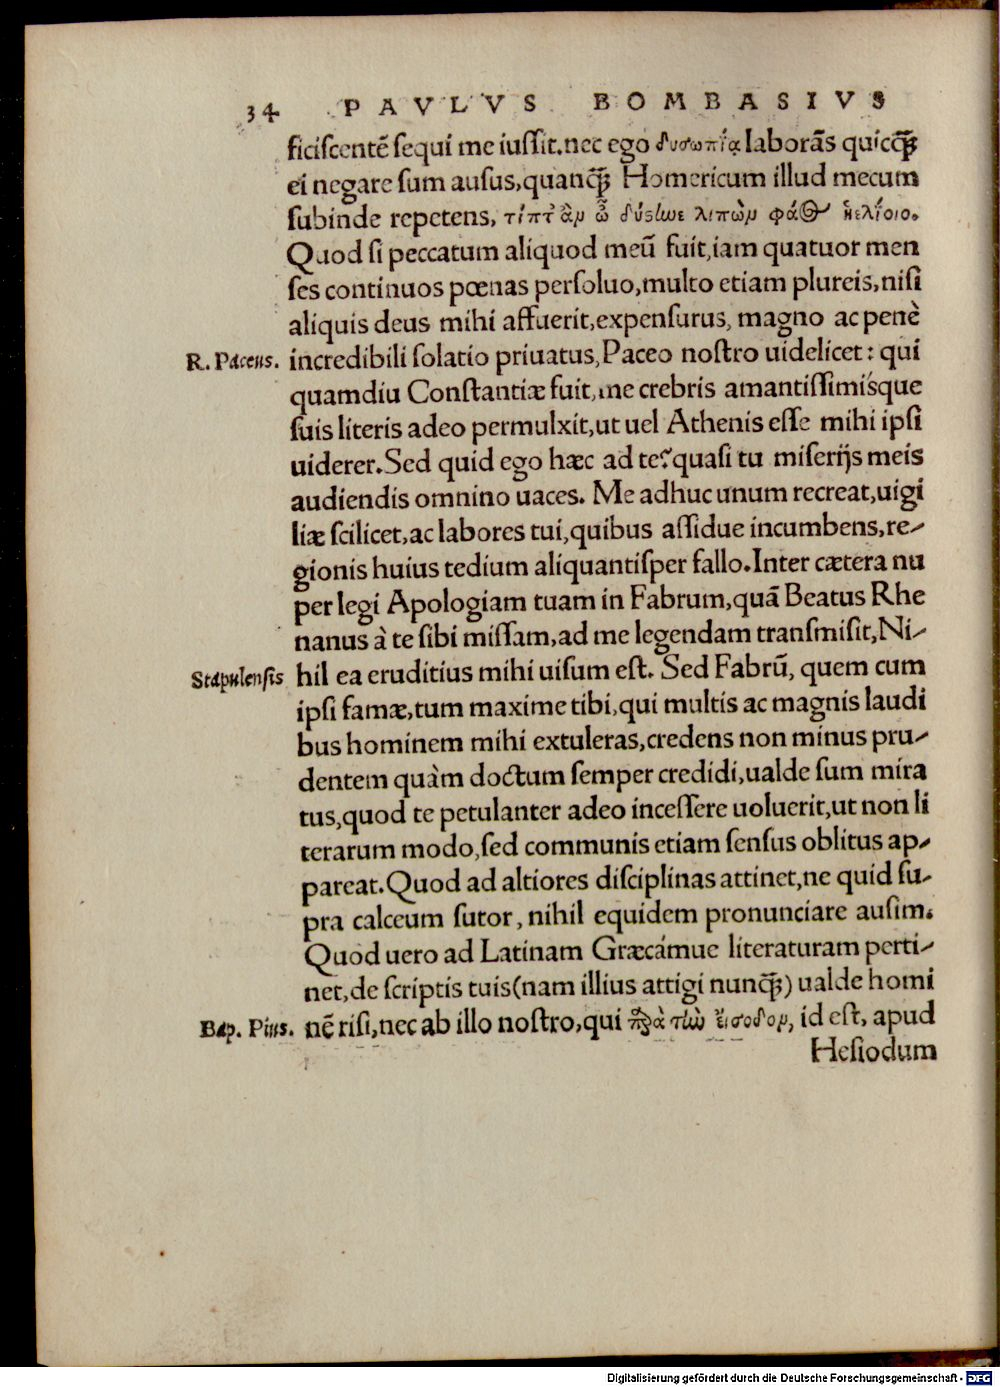 34 PAVLVS BOMBASIVS
ficiscentē sequi me iussit. nec ego δυσωπίᾳ laborās quicq̄
ei negare sum ausus, quanq̄ Homericum illud mecum
subinde repetens, τίπτ᾽ ἂμ ὦ δύστωε λιπὼμ φάος ἠελίοιο.
Quod si peccatum aliquod meū fuit, iam quatuor men
ses continuos pœnas persoluo, multo etiam plureis, nisi
aliquis deus mihi affuerit, expensurus, magno ac penè
R. Paceus. incredibili solatio priuatus, Paceo nostro uidelicet: qui
quamdiu Constantiæ fuit, me crebris amantissimísque
suis literis adeo permulxit, ut uel Athenis esse mihi ipsi
uiderer. Sed quid ego hæc ad te? quasi tu miserijs meis
audiendis omnino uaces. Me adhuc unum recreat, uigi
liæ scilicet, ac labores tui, quibus assidue incumbens, re-
gionis huius tedium aliquantisper fallo. Inter cætera nu
per legi Apologiam tuam in Fabrum, quā Beatus Rhe
nanus à te sibi missam, ad me legendam transmisit, Ni-
Stapulensis hil ea eruditius mihi uisum est. Sed Fabrū, quem cum
ipsi famæ, tum maxime tibi, qui multis ac magnis laudi
bus hominem mihi extuleras, credens non minus pru-
dentem quàm doctum semper credidi, ualde sum mira
tus, quod te petulanter adeo incessere uoluerit, ut non li
terarum modo, sed communis etiam sensus oblitus ap-
pareat. Quod ad altiores disciplinas attinet, ne quid su-
pra calceum sutor, nihil equidem pronunciare ausim.
Quod uero ad Latinam Græcámue literaturam perti-
net, de scriptis tuis (nam illius attigi nunq̄) ualde homi
Bap. Pius. nē risi, nec ab illo nostro, qui παρὰ τὼ ἔισοδομ, id est, apud
Hesiodum
Digitalisierung gefördert durch die Deutsche Forschungsgemeinschaft - DFG